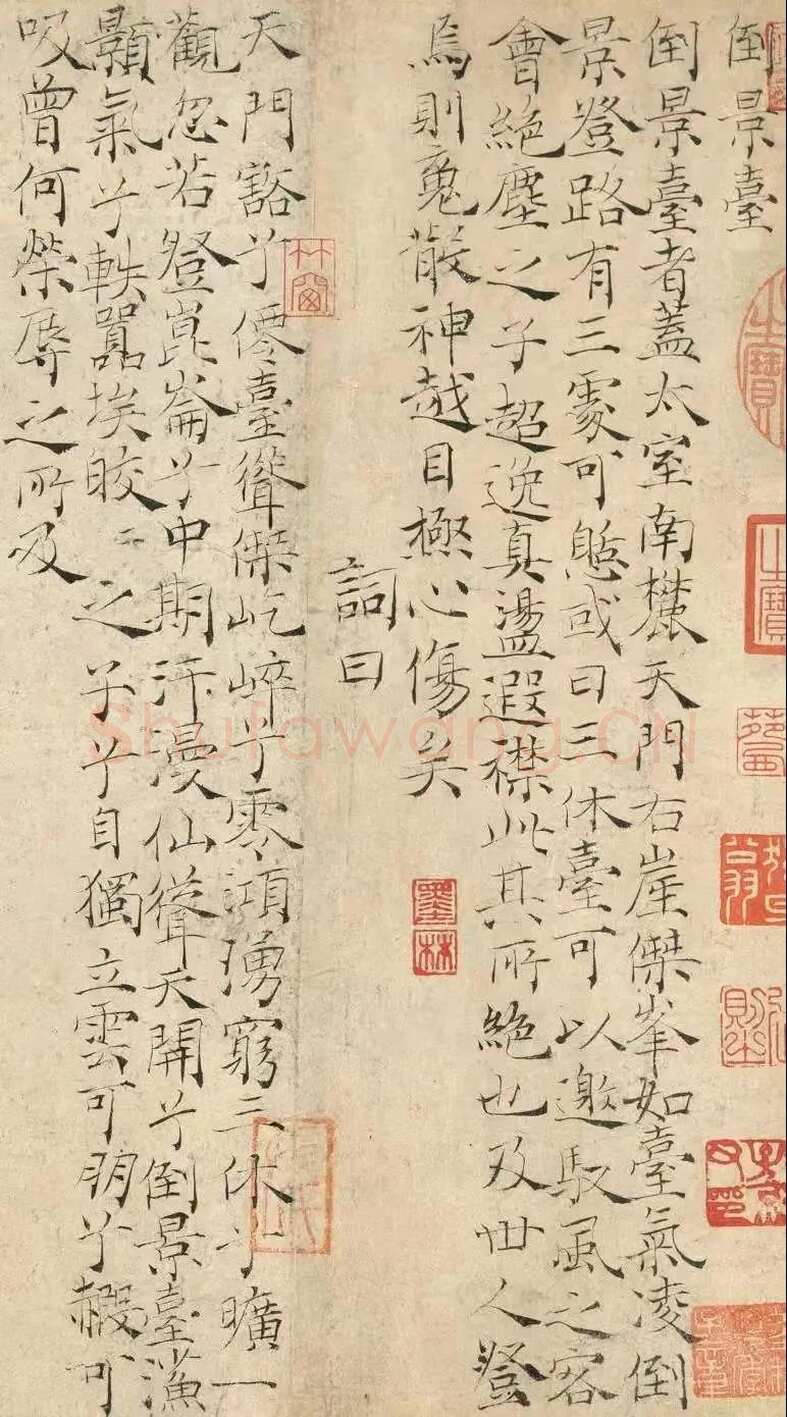 倒景臺
倒景臺者蓋太室南麓天門右崖傑峯如臺氣凌倒
景登路有三處可憩或曰三休臺可以邀馭風之客
會絕塵之子超逸真盪遐襟此其所絕也及世人登
焉則魂散神越目極心傷矣
詞曰
天門豁兮僊臺聳傑屹崒兮零澒湧窮三休兮曠一
觀忽若登崑崙兮中期汗漫仙聳天開兮倒景臺
顥氣兮軼囂埃皎〻之子兮自獨立雲可朋兮赮可
吸曾何榮辱之所及
墨林
Shufawang.CN